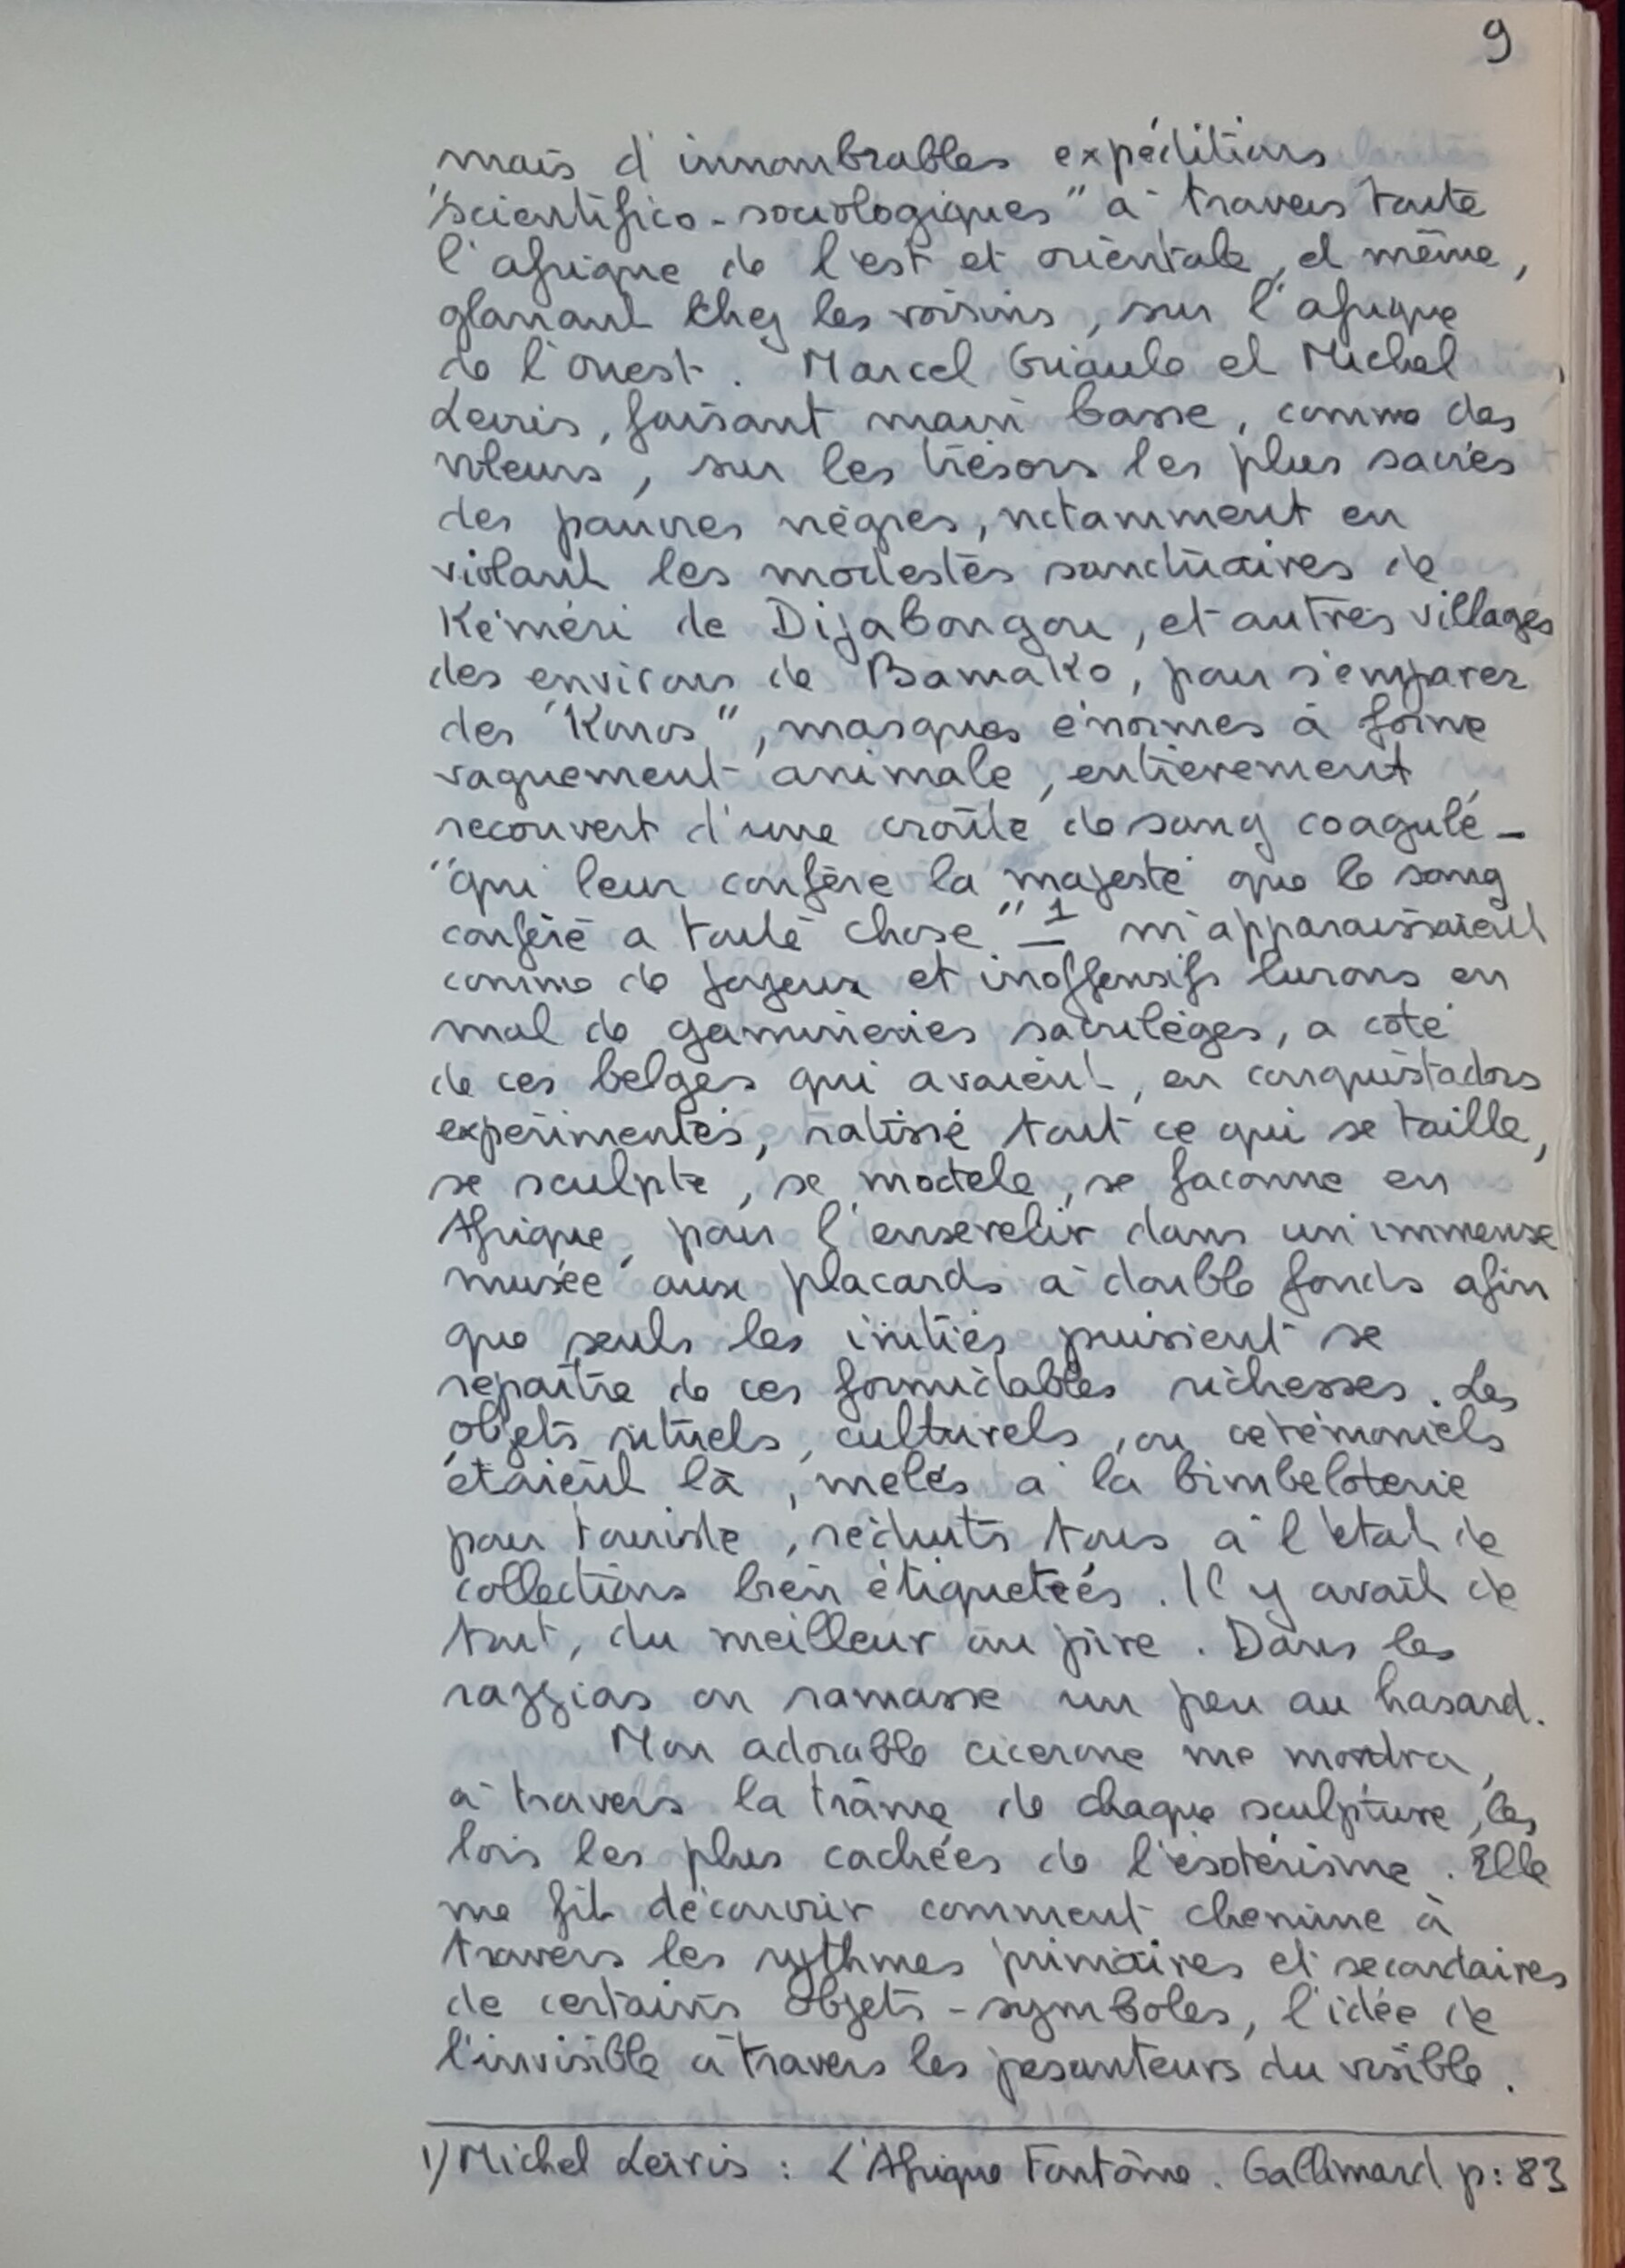 9
mais d'innombrables expéditions
"scientifico-sociologiques" à travers toute
l'afrique de l'est et orientale, et même,
glanant chez les voisins, sur l'afrique
de l'ouest. Marcel Griaule et Michel
Leiris, faisant main basse, comme des
voleurs, sur les trésors les plus sacrés
des pauvres nègres, notamment en
violant les modestes sanctuaires de
Kéméri de Dijabongou, et autres villages
des environs de Bamako, pour s'emparer
des "Konos", masques énormes à forme
vaguement animale, entièrement
recouvert d'une croûte de sang coagulé -
"qui leur confère la majesté que le sang
confère a toute chose" 1 - m'apparaissaient
comme de joyeux et inoffensifs lurons en
mal de gamineries sacrilèges, a coté
de ces belges qui avaient, en conquistadors
expérimentés, ratissé tout ce qui se taille,
se sculpte, se modele, se faconne en
Afrique, pour l'ensevelir dans un immense
musée aux placards à double fonds afin
que seuls les initiés puissent se
repaître de ces formidables richesses. Les
objets rituels, culturels, ou cérémoniels
étaient là, melés à la bimbeloterie
pour touriste, réduits tous à l'état de
collections bien étiquetées. Il y avait de
tout, du meilleur au pire. Dans les
razzias on ramasse un peu au hasard.
Mon adorable cicerone me montra,
à travers la trâme de chaque sculpture, les
lois les plus cachées de l'ésotérisme. Elle
me fit découvrir comment chemine à
travers les rythmes primaires et secondaires
de certains objets-symboles, l'idée de
l'invisible à travers les pesanteurs du visible.
1) Michel Leiris : L'Afrique Fantôme. Gallimard p: 83